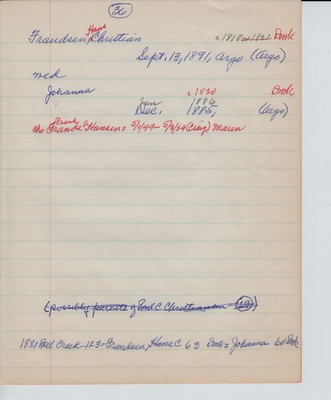 36
Frandsen, Hans Christian c1818 or 1821 Dmk
Sept. 13, 1891, Argo (Argo)
med
Johanna c1820 Dmk
Jan 1886
Dec. 1885, (Argo)
Hansen = 5/1/49 - 5/3/64 (Craig) Maren
(possibly parents of Poul C Christiansen 29)
1880 Bell Creek 123 = Frandsen, Hans C 63 Dmk = Johanna 60 Dmk